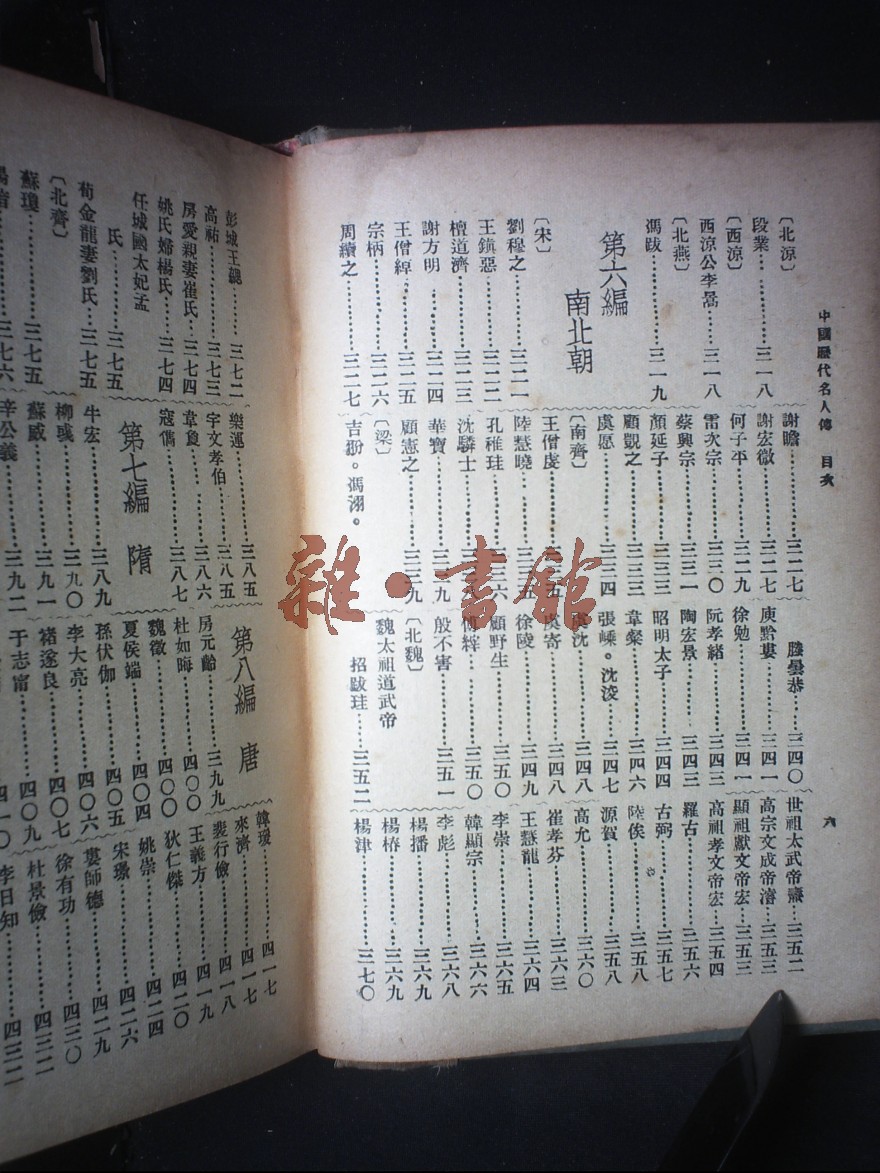 中國歷代名人傳　目次
六
〔北涼〕
段業…………三一八
〔西涼〕
西涼公李暠……三一八
〔北燕〕
馮跋…………三一九
第六編　南北朝
〔宋〕
劉穆之…………三二一
王鎭惡…………三二二
檀道濟…………三二三
謝方明…………三二四
王僧綽…………三二五
宗柄…………三二六
周續之…………三二七
謝瞻…………三二七
謝宏微…………三二七
何子平…………三二九
雷次宗…………三三〇
蔡興宗…………三三一
顏延子…………三三三
顧覬之…………三三三
虞愿…………三三四
〔南齊〕
王僧虔…………三三五
陸慧曉…………三三五
孔稚珪…………三三六
沈驎士…………三三八
華寶…………三三九
顧憲之…………三三九
〔梁〕
吉翂。馮淵。
滕曇恭…………三四〇
庾黔婁…………三四一
徐勉…………三四一
阮孝緒…………三四三
陶宏景…………三四三
昭明太子…………三四四
韋粲…………三四六
張嵊。沈浚…………三四七
沈…………三四八
虞寄…………三四八
徐陵…………三四九
顧野生…………三五〇
傅縡…………三五〇
殷不害…………三五一
〔北魏〕
魏太祖道武帝
招跋珪…………三五二
世祖太武帝燾…三五二
高宗文成帝濬…三五三
顯祖獻文帝宏…三五三
高祖孝文帝宏…三五四
羅古…………三五六
古弼…………三五七
陸俟…………三五八
源賀…………三五八
高允…………三六〇
崔孝芬…………三六三
王慧龍…………三六四
李崇…………三六五
韓顯宗…………三六六
李彪…………三六八
楊播…………三六九
楊椿…………三六九
楊津…………三七〇
彭城王勰…………三七二
高祐…………三七三
房愛親妻崔氏……三七四
姚氏婦楊氏……三七四
任城國太妃孟
氏…………三七五
荀金龍妻劉氏…三七五
〔北齊〕
蘇瓊…………三七五
三七六
樂運…………三八五
宇文孝伯…………三八五
韋敻…………三八六
寇儁…………三八七
第七編　隋
牛宏…………三八九
柳彧…………三九〇
蘇威…………三九一
辛公義…………三九二
第八編　唐
房元齡…………三九九
杜如晦…………四〇〇
魏徵…………四〇〇
夏侯端…………四〇四
孫伏伽…………四〇五
李大亮…………四〇六
褚遂良…………四〇七
于志甯…………四〇九
四一〇
韓瑗…………四一七
來濟…………四一七
裴行儉…………四一八
王義方…………四一九
狄仁傑…………四二〇
姚崇…………四二四
宋璟…………四二六
婁師德…………四二九
徐有功…………四三〇
杜景儉…………四三二
李日知…………四三二
雜·書館